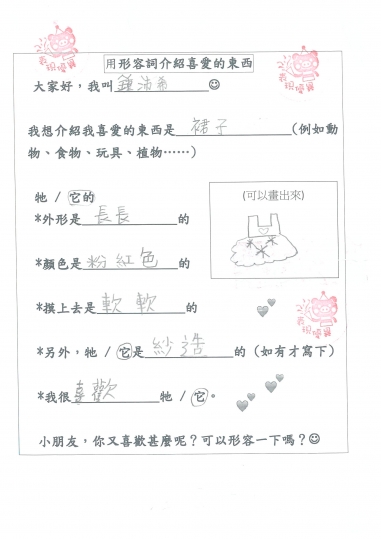 用形容詞介紹喜愛的東西
大家好，我叫鍾沛希☺
我想介紹我喜愛的東西是裙子(例如動
物、食物、玩具、植物……)
牠 / 它的
(可以畫出來)
*外形是長長的
*顏色是粉紅色的
*摸上去是軟軟的
*另外，牠 / 它是紗造的（如有才寫下）
*我很喜歡牠 / 它。
小朋友，你又喜歡甚麼呢？可以形容一下嗎？☺
表現優異
表現優異
表現優異